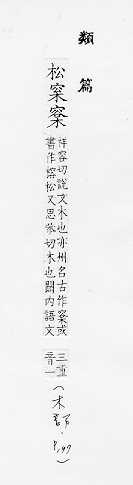 類篇
松㮤
祥容切說文木也亦州名古作㮤或
書作松又思恭切木也關內語文
三重
音一
(木部 P.197)